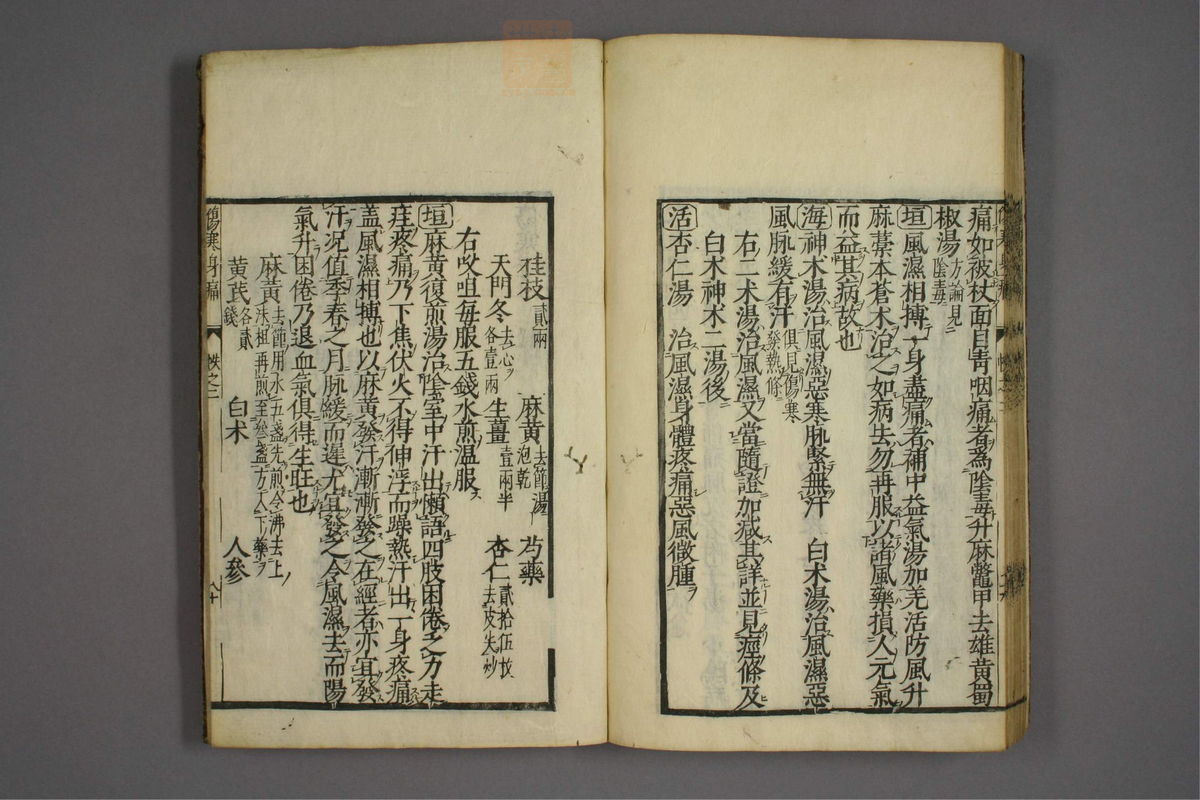 痛如被杖面目靑咽痛者爲陰毒升麻鼈甲去雄黃蜀
椒湯方論見陰毒
垣風濕相搏一身盡痛者補中益氣湯加羌活防風升
麻藁本蒼木治之如病去勿再服以諸風藥損人元氣
而益其病故也
海神木湯治風濕惡寒脉緊無汗 白木湯治風濕惡
風脉緩有汗俱見傷寒發熱條
右二木湯治風濕又當隨證加减其詳並見痓條及
白木神木二湯後
活杏仁湯 治風濕身體疼痛惡風微腫
桂枝貳兩 麻黃去節湯泡乾 芍藥
天門冬去心各壹兩 生薑壹兩半 杏仁貳拾伍枚去皮尖炒
右㕮咀每服五錢水煎温服
垣麻黃復煎湯治陰室中汗出懶語四肢困倦乏力走
疰疼痛乃下焦伏火不得伸浮而躁熱汗出一身疼痛
盖風濕相搏也以麻黃發汗漸漸發之在經者亦宜發
汗况值季春之月脉緩而遲尤宜發之令風濕去而陽
氣升困倦乃退血氣俱得生旺也
麻黃去節用水五盞先煎令沸去上沬柤再煎至叁盞方入下藥
黃芪各貳錢 白木 人參
傷寒身痛 帙之二 八十